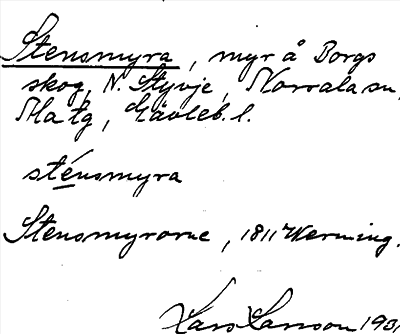 Stensmyra, myr å Borgs
skog, N. Styvje, Norrala sn,
Ha tg, Gävleb. l.
sténsmyra
Stensmyrorne, 1811 Werming.
Lars Larsson 193